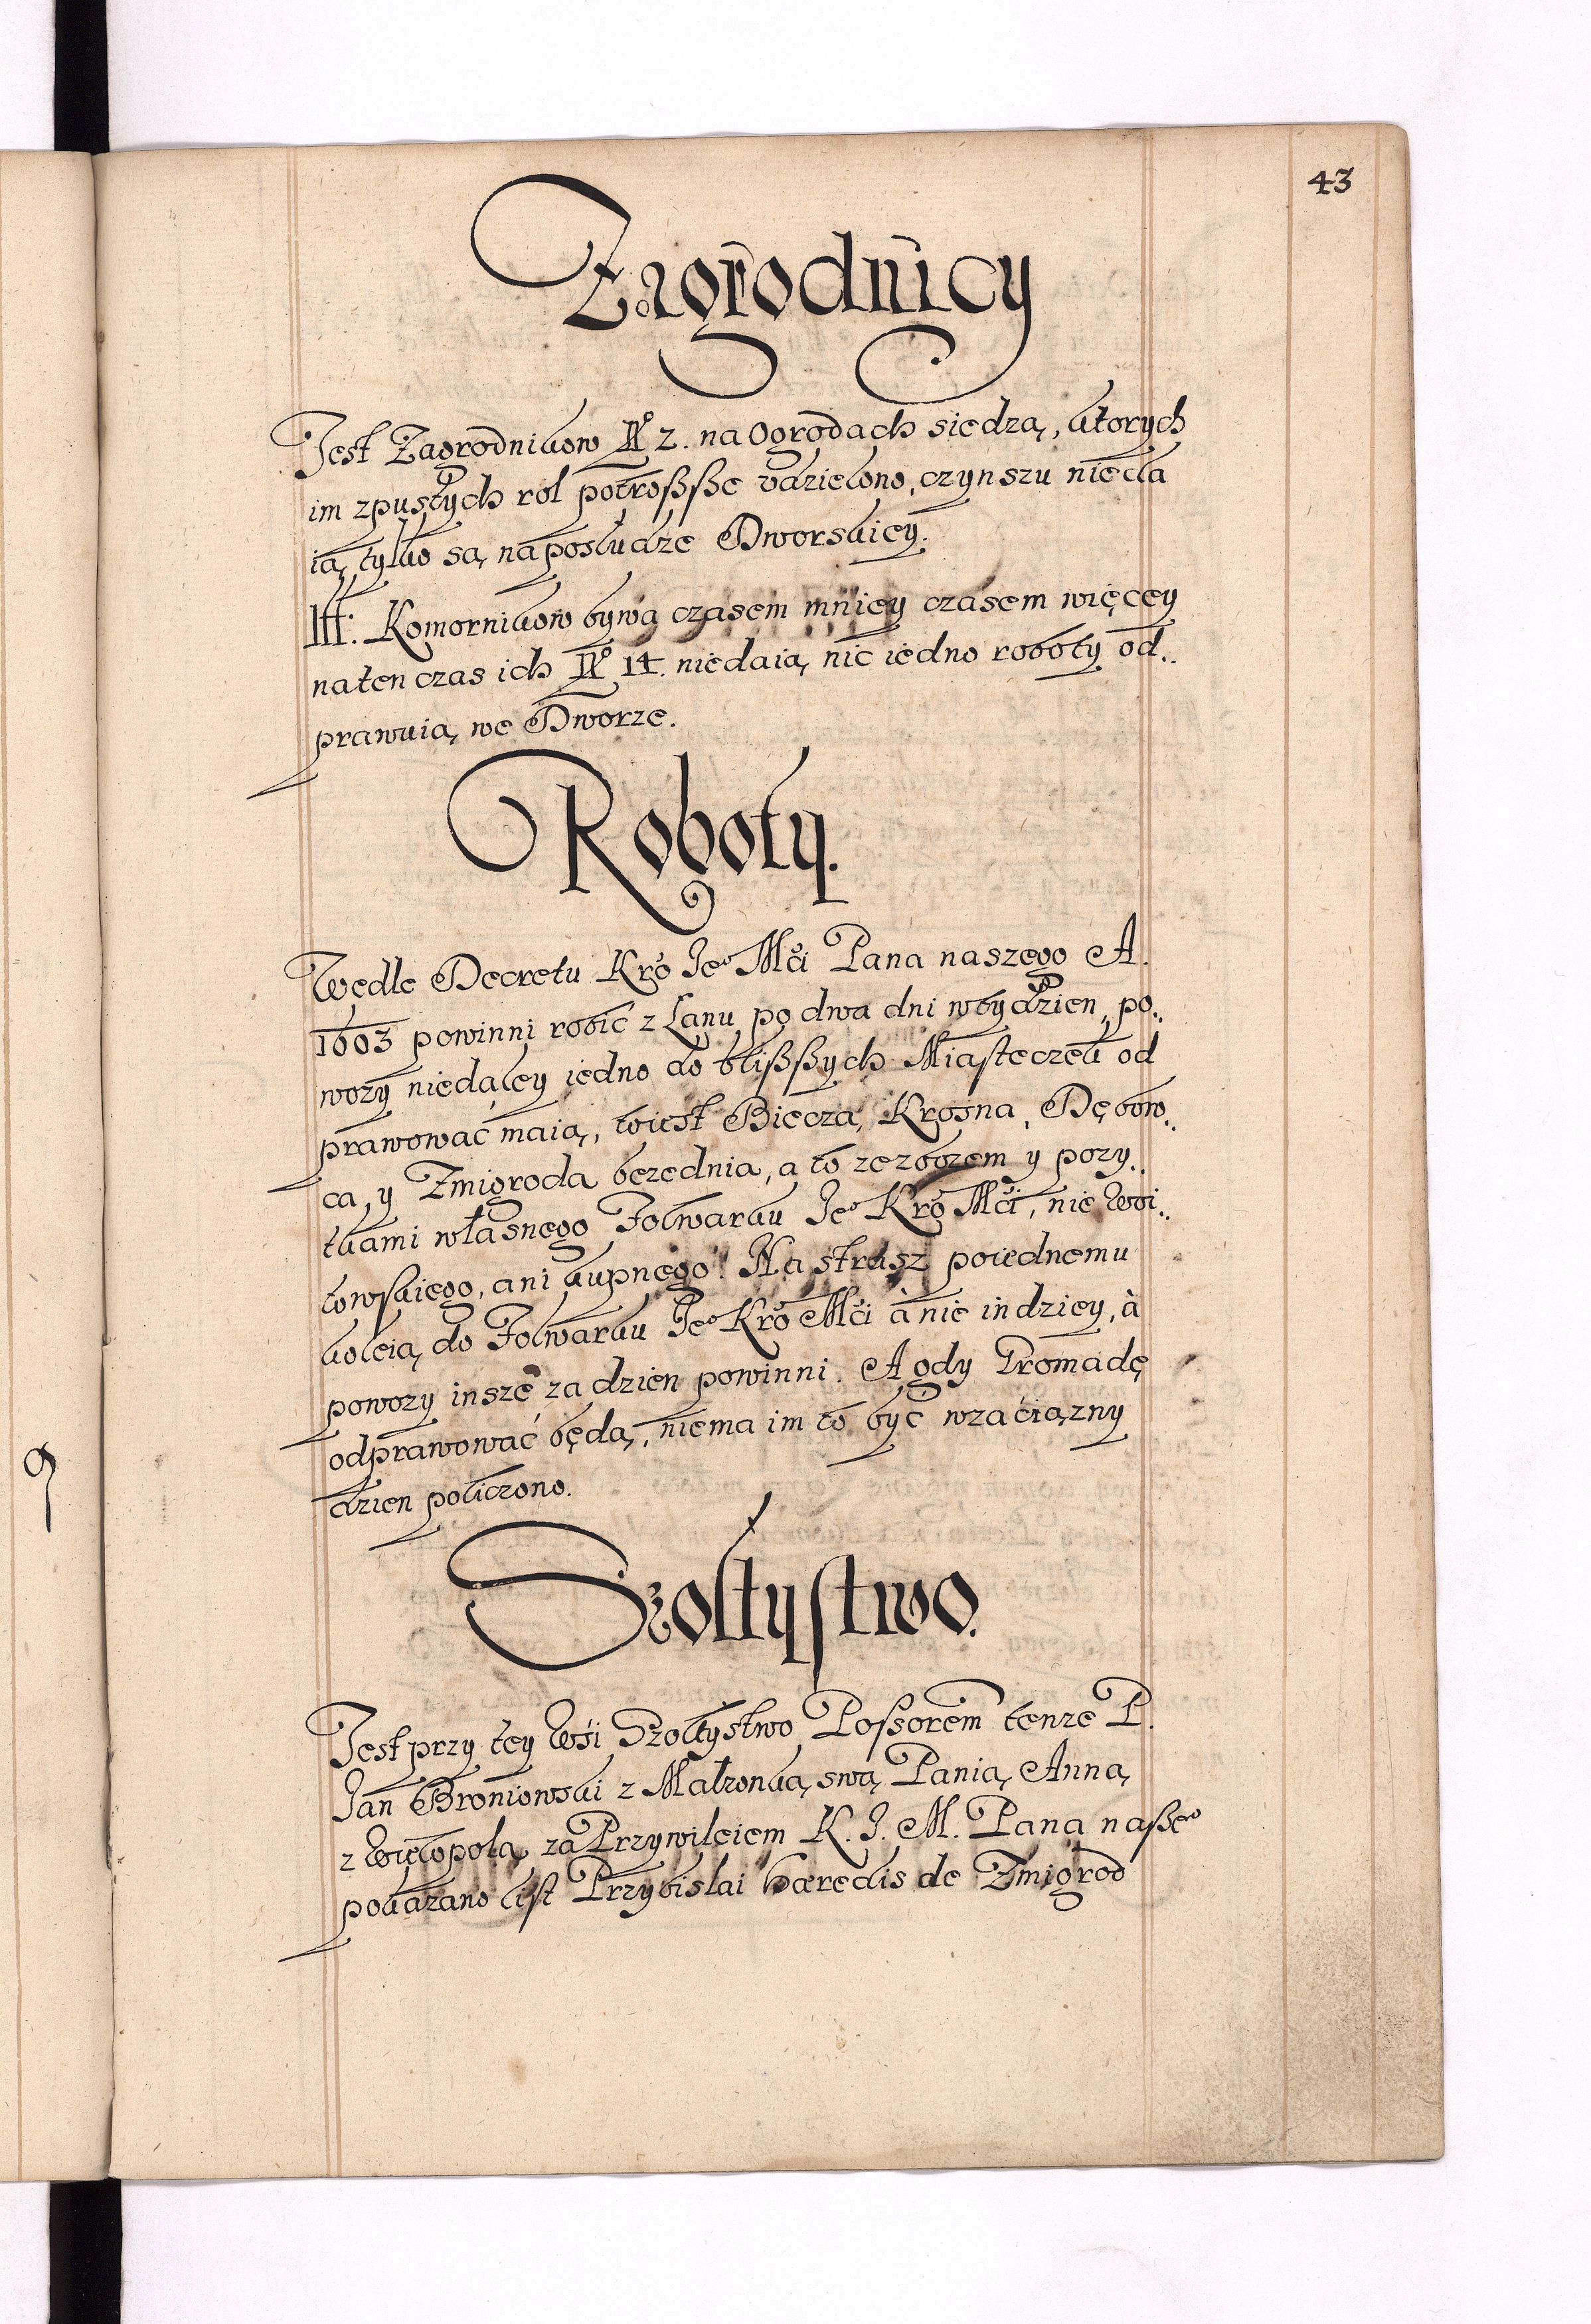 43
Zagrodnicy
Jest Zagrodnikow No 2. na Ogrodach siedzą, ktorych
im z pustych rol potroßße vdzielono, czynszu nie da
ią, tylko są na posłudze Dworskiey.
Itt: Komornikow bywa czasem mniey czasem więcey
na ten czas ich No 14. niedaią nic iedno roboty od..
prawuią we Dworze.
Roboty.
Wedle Decretu Kro Jeo Mći Pana naszego A.
1603 powinni robić z Łanu po dwa dni w tydzien, po..
wozy niedaley iedno do blißßych Miasteczek od
prawować maią, to iest Biecza, Krosna, Dębow..
ca, y Zmigroda bezednia, a to ze zbozem y pozy..
tkami własnego Folwarku Jeo Kro Mći, nie Woi..
towskiego, ani kupnego. Na strusz poiednemu
koleią do Folwarku Jeo Kro Mći à nie indziey, à
powozy insze za dzien powinni. A gdy Gromadę
odprawować będą, niema im to być wzaciązny
dzien policzono.
Szoltystwo.
Jest przy tey Wsi Szołtystwo Poßorem tenze P.
Jan Broniowski z Małzonką swą Panią Anną
z Wielopola za Przywileiem K. J. M. Pana naßeo
pokazano list Przybislai Hæredis de Zmigrod
9